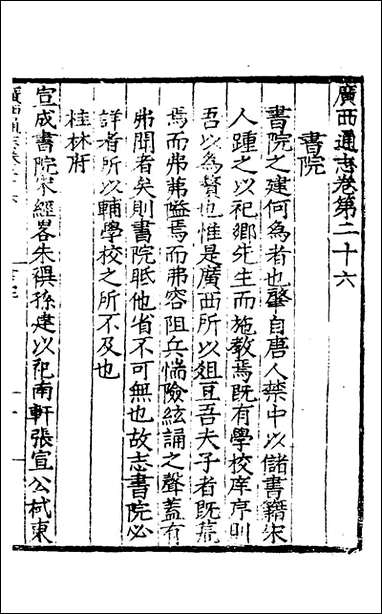 廣西通志卷第二十六
書院
書院之建何為者也肇自唐人禁中以儲書籍宋
人踵之以祀鄉先生而施教焉既有學校庠序則
吾以為贅也惟是廣西所以俎豆吾夫子者既荒
焉而弗弗隘焉而弗容阻兵惴險絃誦之聲蓋有
弗聞者矣則書院眂他省不可無也故志書院必
詳者所以輔學校之所不及也
桂林府
宣成書院宋經畧朱禩孫建以祀南軒張宣公栻東
廣西通志卷二十六